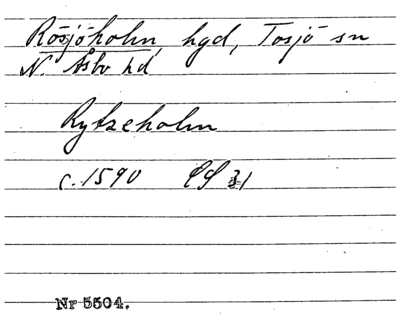 Rösjöholm, hgd, Tosjö sn
N. Åsbo hd
Rytzeholm
c. 1590 LS 31
Nr 5504.